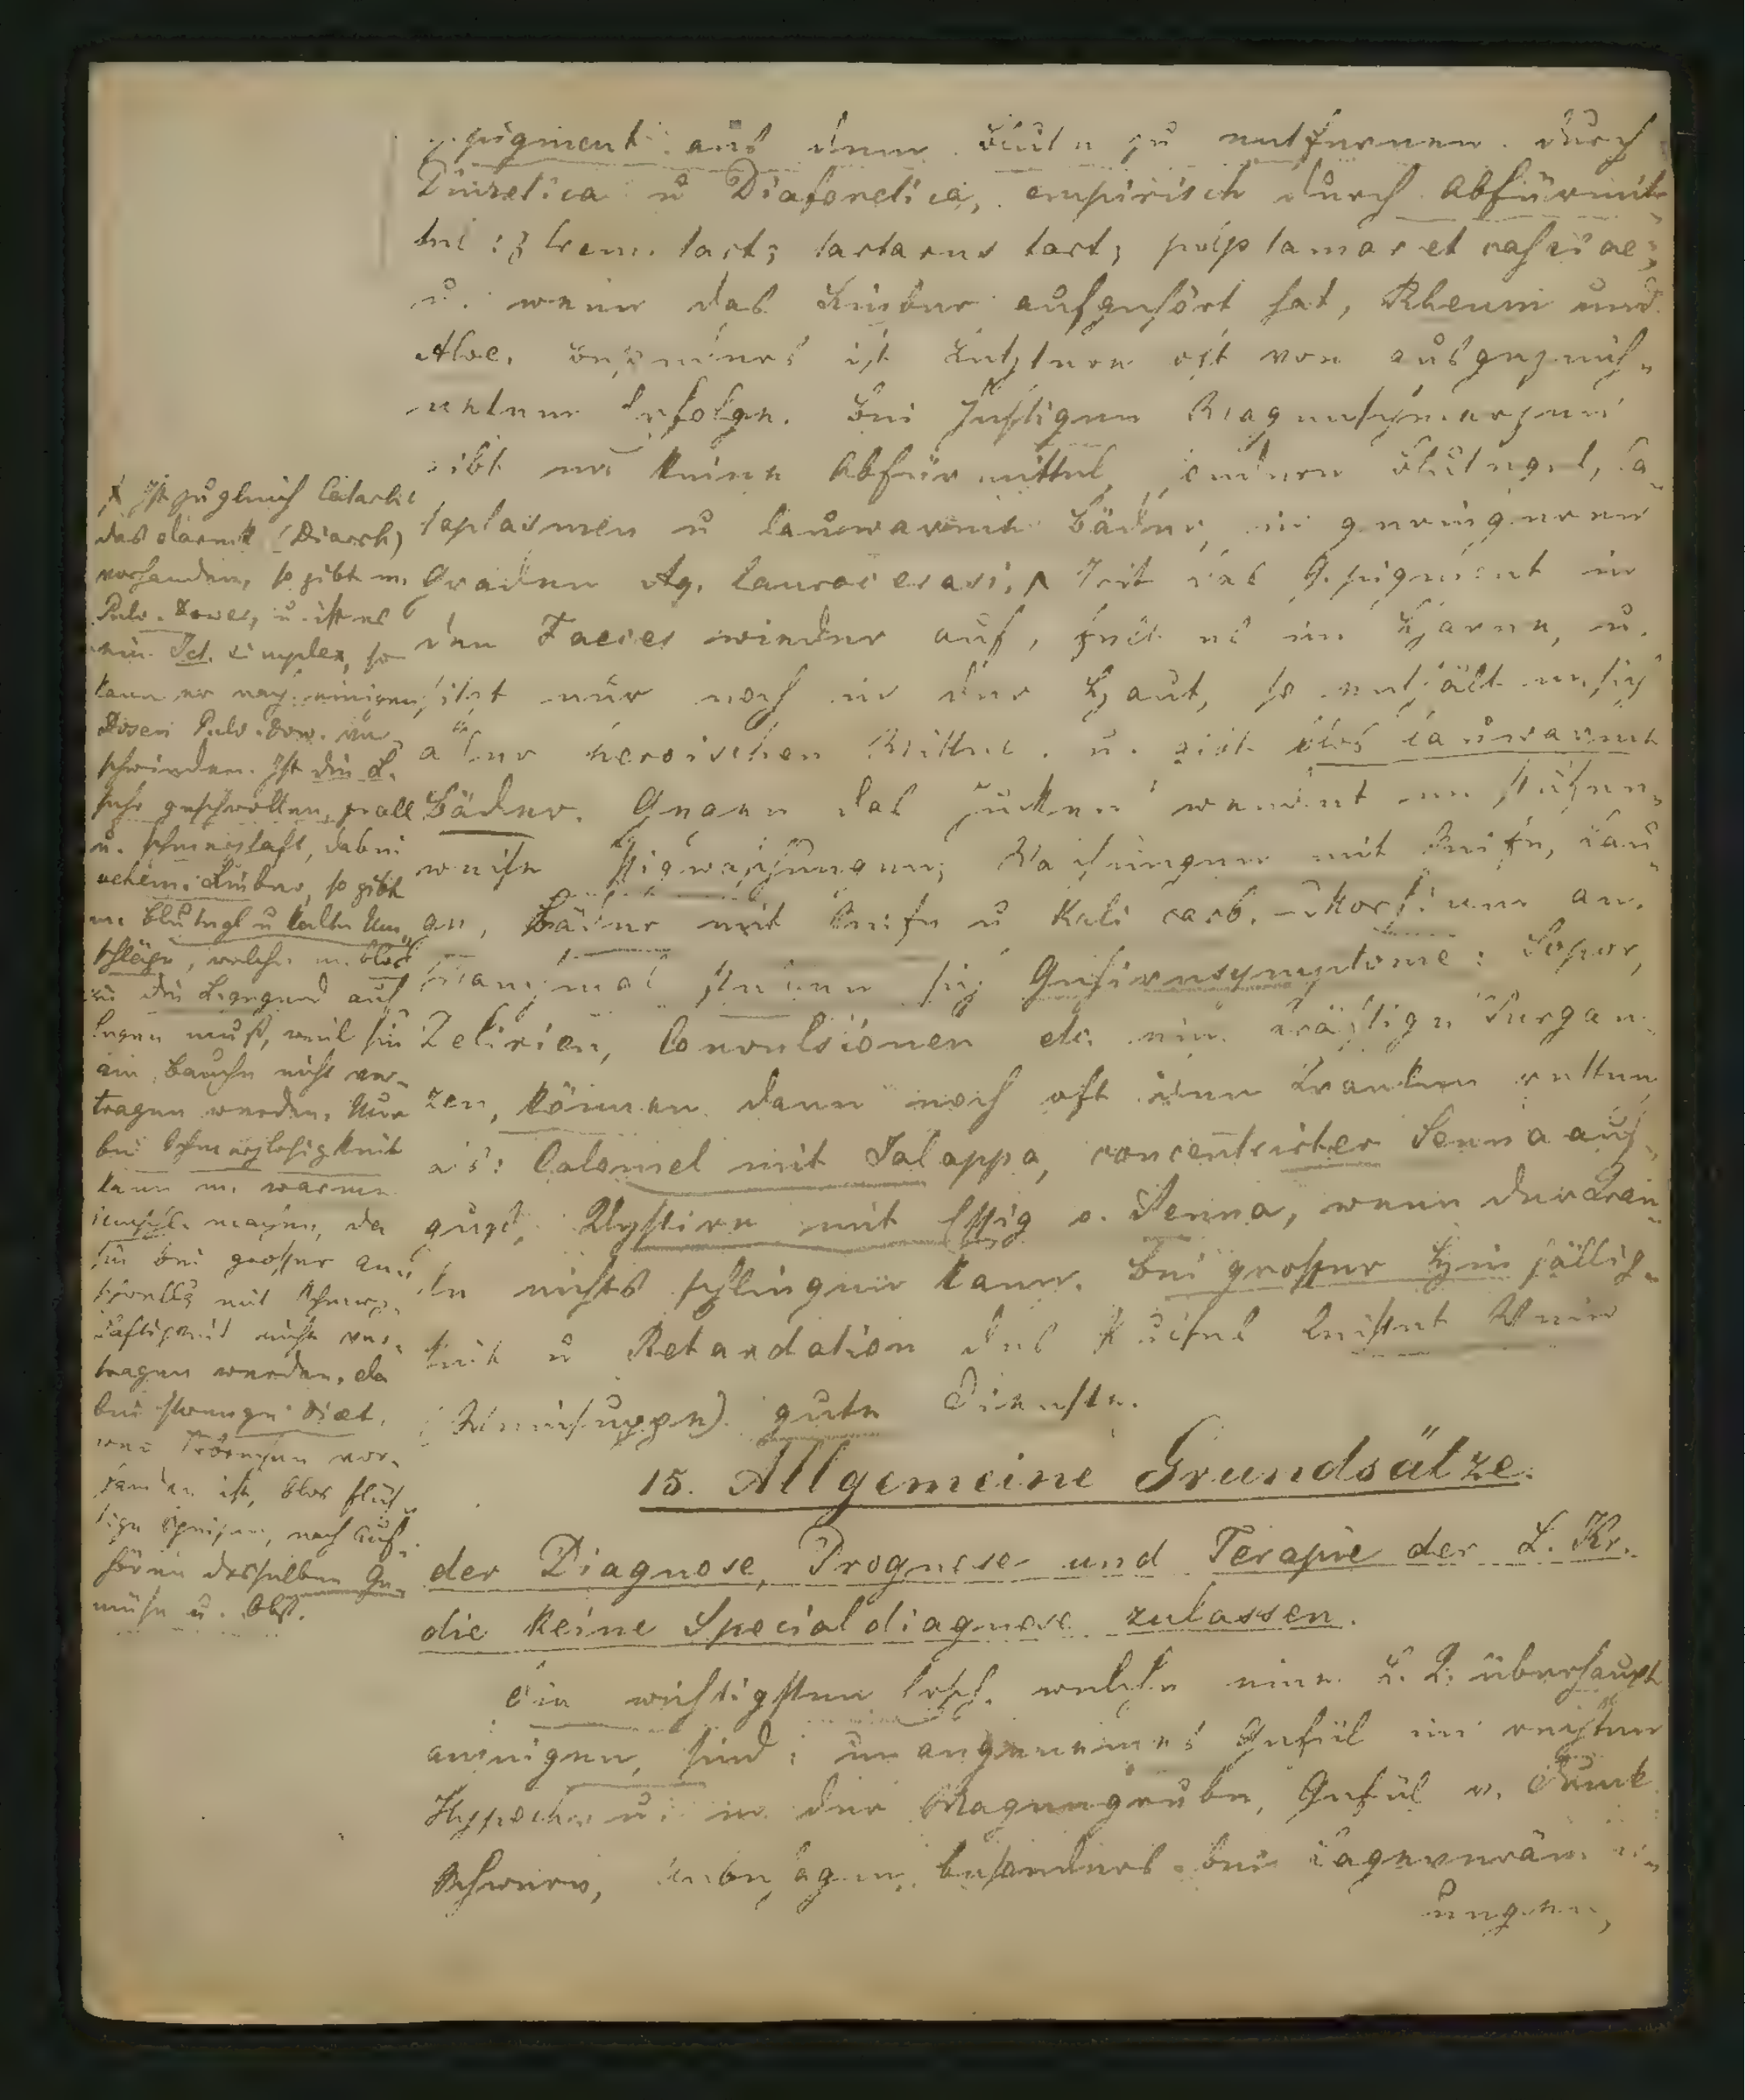 pigment aus dem Blute zu entfernen durch
Diuretica u Diaforetica, empirisch durch Abfürmit-
tel: Crem. tart; tartarus tart; pulp tamar et cassiae;
u. wenn das Fieber aufgehört hat, Rheum und
Aloe, besonders ist Letzteres oft von ausgezeich-
netem Erfolge. Bei heftigen Magenschmerzen
gibt m. keine Abfürmittel, sondern Blutegel, Ca-
taplasmen u lauwarme Bäder, in geringeren
Graden Aq. laurocerasi. Trit das G.pigment in
den Faeces wieder auf, felt es im Harne, u.
sitzt nur noch in der Haut, so enthält m. sich
aller heroischen Mittel u. gibt blos lauwarme
Bäder. Gegen das Jucken wendet m.
weise Waschungen mit Seife, Lau-
ge, Bäder mit Seife u Kali carb. an.
Manchmal stellen sich Gehirnsymptome: Sopor,
Delirien, Convulsionen etc. ein. Kräftige Purgan-
zen können dann noch oft den Kranken retten
als: Calomel mit Jalappa, concentrirter Senna auf-
guss, Klystire mit Essig o. Senna, wenn der Kran-
ke nichts schlingen kann. Bei grosser Hinfällig-
keit u Retardation des Pulses leistet Wein
(Weinsuppe) gute Dienste.
x Ist zugleich Catarh
des Darmes (Diarrh)
vorhanden, so gibt m.
Pulv. Dower, u. ist es
ein Ict. simplex, so
kann er nach einigen
Dosen Pulv. Dow. ver-
schwinden. Ist die L.
sehr geschwollen, prall
u. schmerzhaft, dabei
vehem. Fieber, so gibt
m. Blutegl u kalte Um-
schläge, welche m. blos
auf die L.gegend auf
legen muß, weil sie
am Bauche nicht ver-
tragen werden. Nur
bei Schmerzlosigkeit
kann m. warme
Umschl. machen, da
sie bei grosser Ans
chwellg mit Schmerz-
haftigkeit nicht ver-
tragen werden. Da
bei strenge Diät,
wenn Fiebern vor-
handen ist, blos flüs
sige Speisen, nach Auf-
hören desselben Ge-
müse u. Obst.
15. Allgemeine Grundsätze.
der Diagnose, Prognose und Terapie der L. Kr.
die keine Specialdiagnose zulassen.
Die wichtigsten Ersch. welche eine L. K. überhaupt
anzeigen, sind: unangenemes Gefül im rechten
Hypochon. u. in der Magengrube, Gefül v. Druck
Schwere, Unbehagen, besonders bei Lageveränder-
ungen,